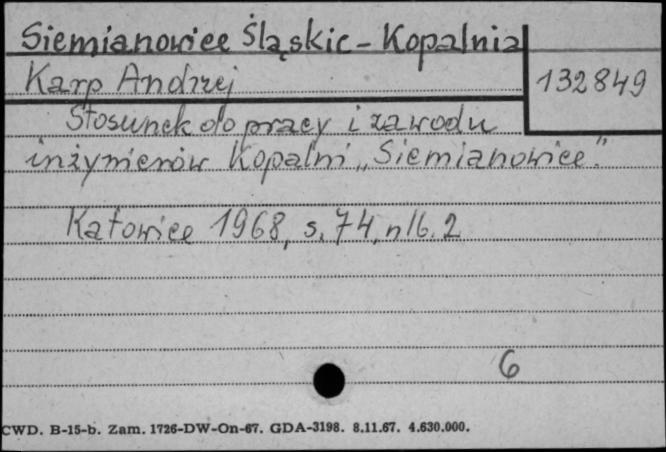 Siemianowice Śląskie - Kopalnia
Karp Andrzej
132849
Stosunek do pracy i zawodu
inżynierów Kopalni „Siemianowice".
Katowice 1968, s. 74, nlb. 2
6
CWD. B-15-b. Zam. 1726-DW-On-67. GDA-3198. 8.11.67. 4.630.000.